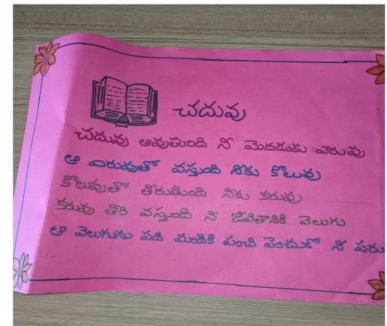 చదువు
చదువు అవుతుంది నీ మెదడుకు ఎరువు
ఆ ఎరువుతో వస్తుంది నీకు కొలువు
కొలువుతో తీరుతుంది నీకు కరువు
కరువు తీరి వస్తుంది నీ జీవితానికి వెలుగు
ఆ వెలుగును పది మందికి పంచి పెంచుకో నీ పరు